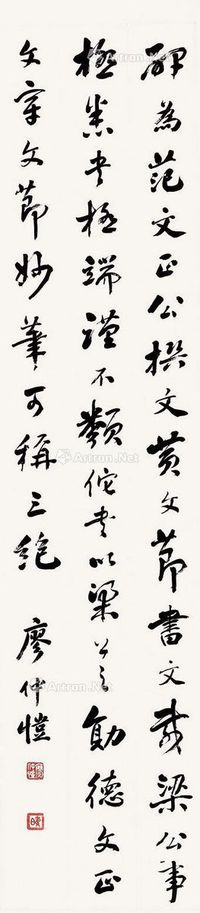 碑為范文正公撰文黄文節書文載梁公事
極悉書極端謹不類佗書以梁公之勛德文正
文章文節妙筆可稱三絕 廖仲愷
Artron.Net